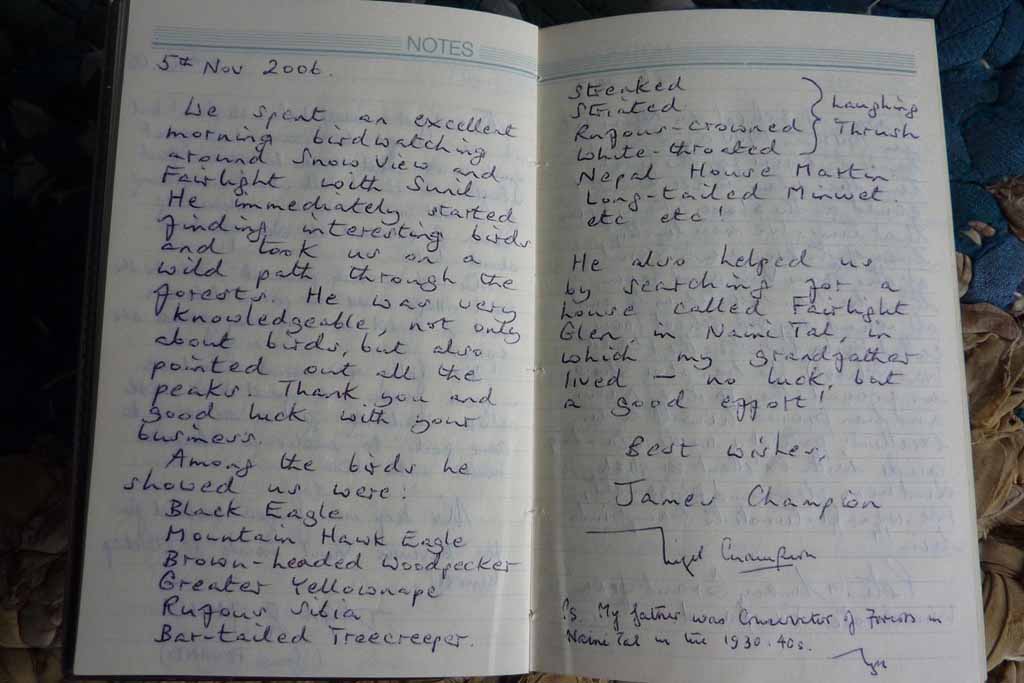 NOTES
5th Nov 2006.
We spent an excellent
morning birdwatching
around Snow View and
Fairlight with Sunil.
He immediately started
finding interesting birds
and took us on a
wild path through the
forests. He was very
knowledgeable, not only
about birds, but also
pointed out all the
peaks. Thank you and
good luck with your
business.
Among the birds he
showed us were:
Black Eagle
Mountain Hawk Eagle
Brown-headed Woodpecker
Greater Yellownape
Rufous Sibia
Bar-tailed Treecreeper.
Streaked
Striated
Rufous-crowned
White-throated
} Laughing
Thrush
Nepal House Martin
Long-tailed Minivet.
etc etc!
He also helped us
by searching for a
house called Fairlight
Glen, in Naini Tal, in
which my grandfather
lived — no luck, but
a good effort!
Best wishes,
James Champion
Nigel Champion
P.S My father was Conservator of Forests in
Naini Tal in the 1930.40s.